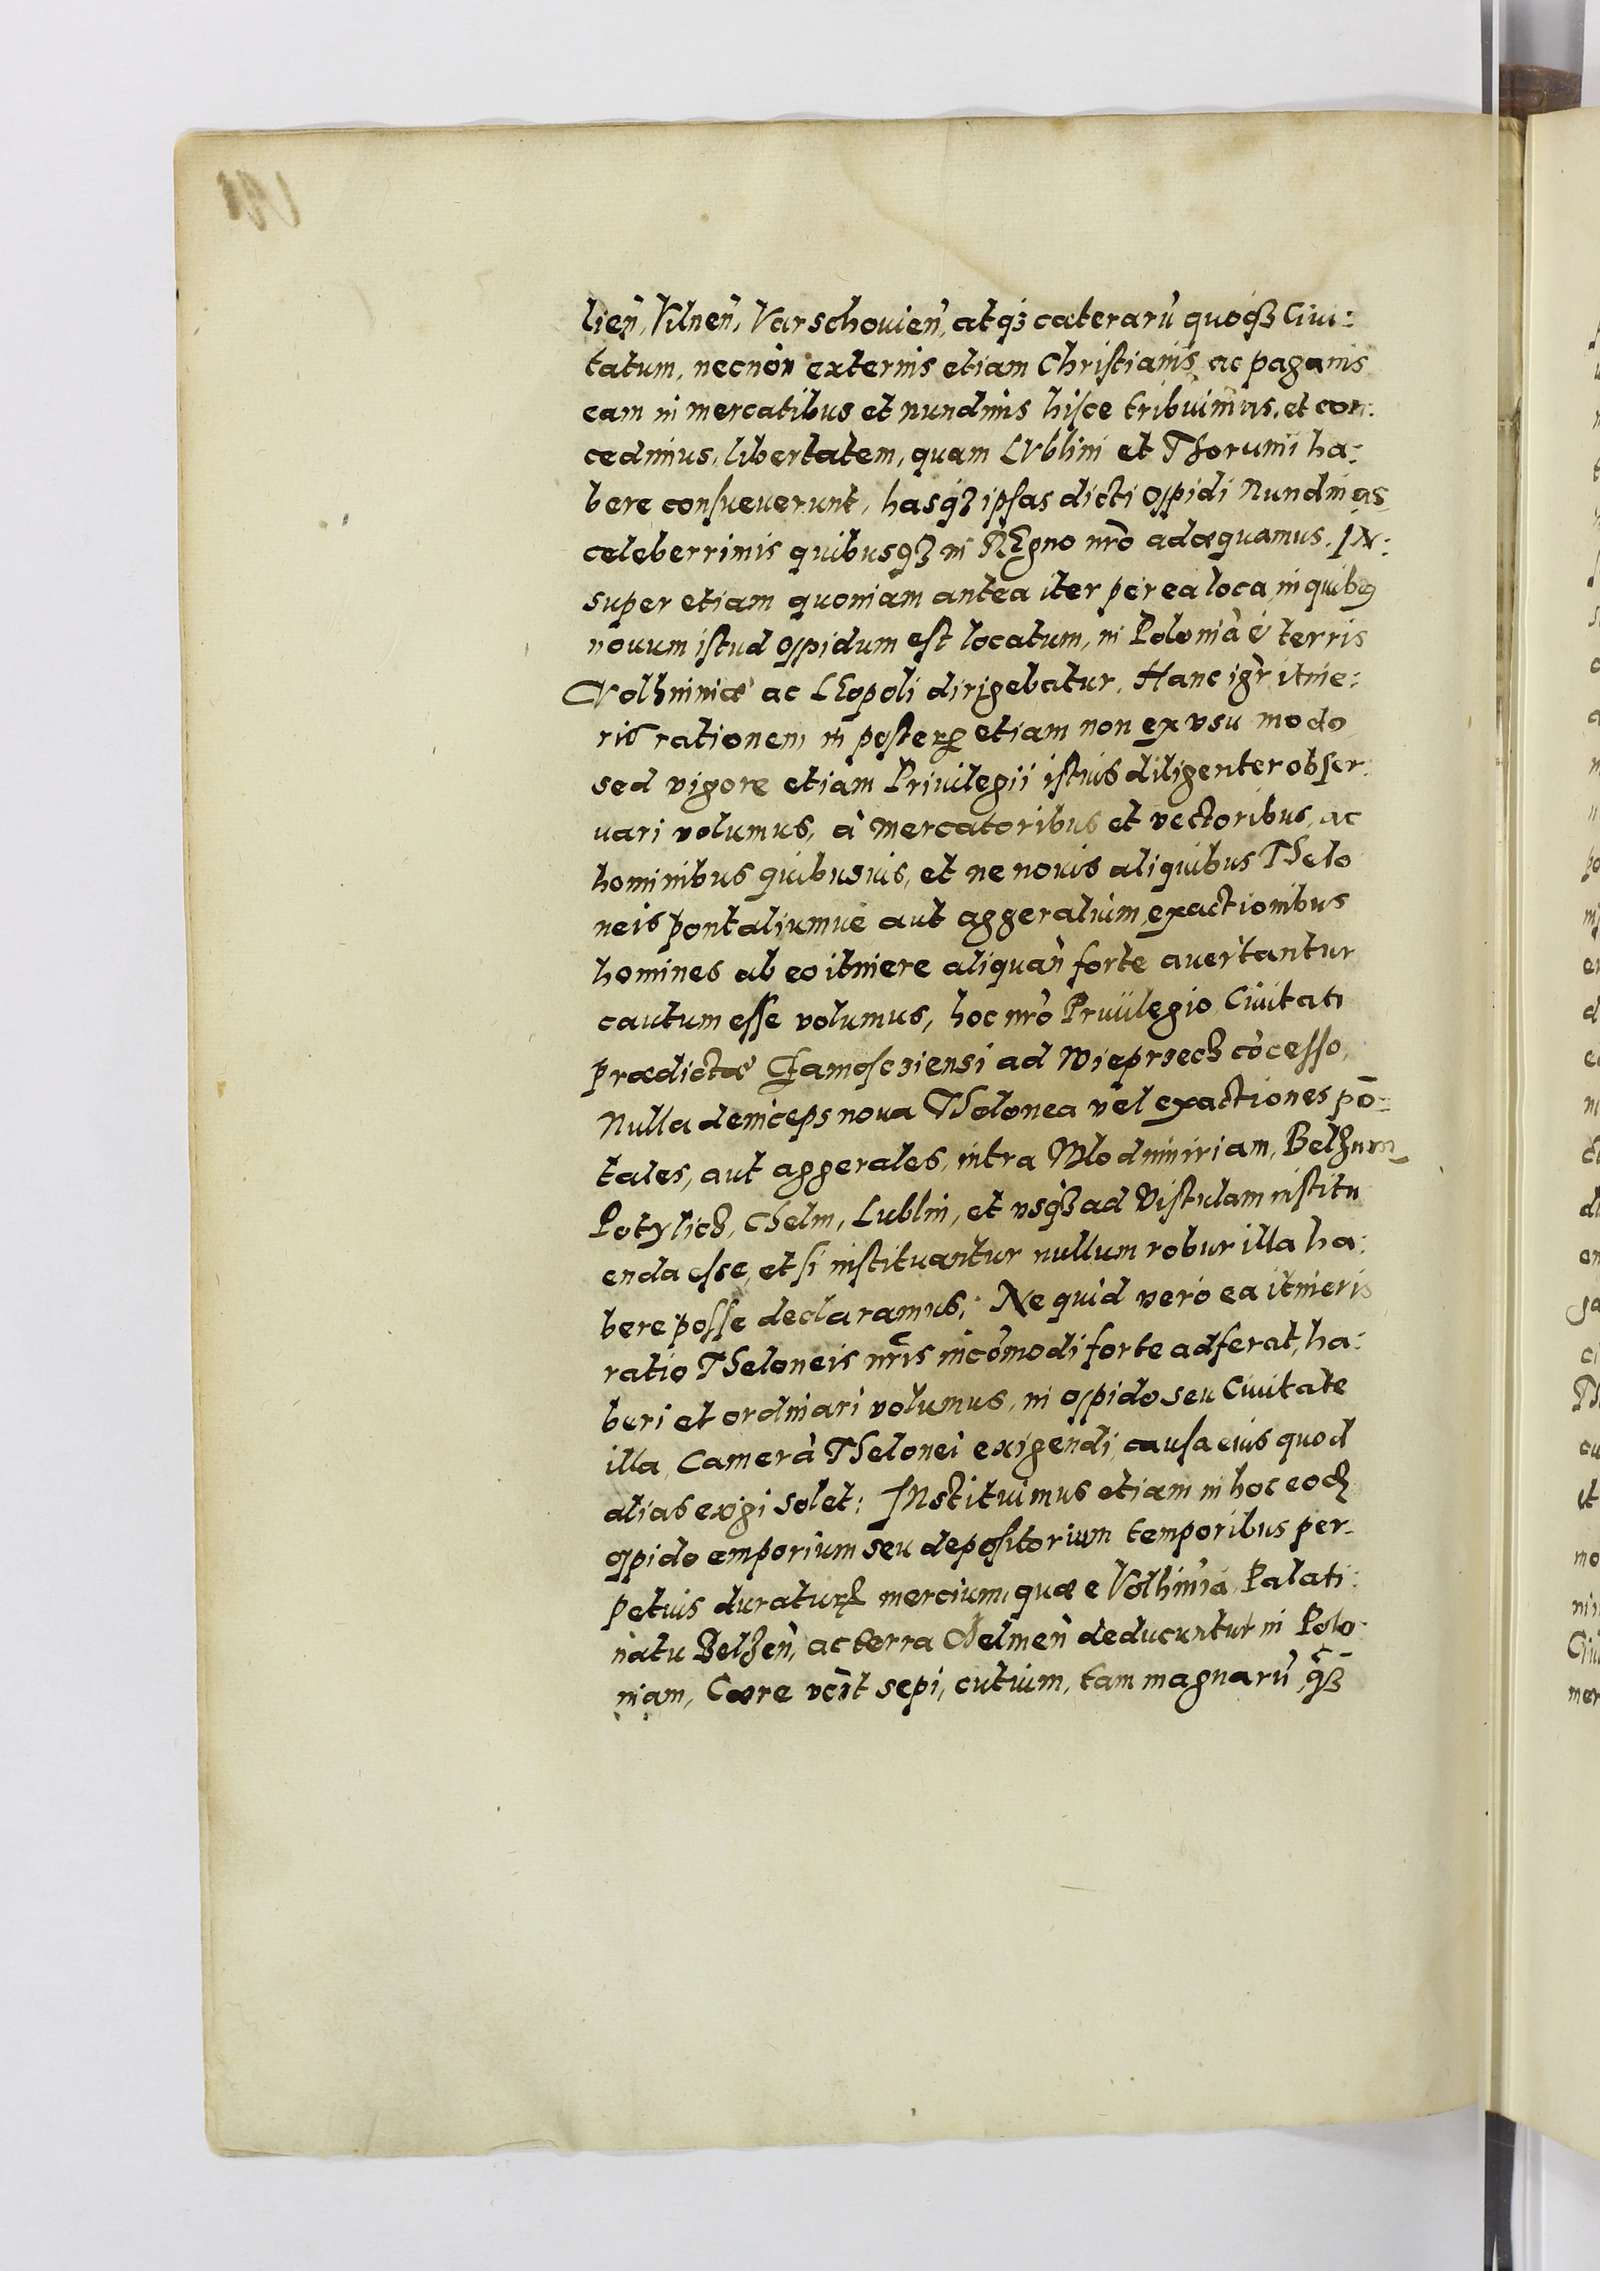 lieñ, Vilneñ, Varschouieñ, atqȝ cæterarũ quoqȝ Ciui:
tatum, necnõn externis etiam Christianis, ac paganis
eam in mercatibus et nundinis hisce tribuimus, et con:
cedimus, libertatem, quam LVblini et Thorunii ha:
bere consueuerunt, hasqȝ ipsas dicti oppidi Nundinas
celeberrimis quibusqȝ in REgno nrõ adæquamus. IN:
super etiam quoniam antea iter per ea loca, in quibꝰ
nouum istud oppidum est locatum, in Polonia è terris
Volhiniæ ac LEopoli dirigebatur, Hanc igr̃ itine:
ris rationem in posterꝝ etiam non ex vsu modo,
sed vigore etiam Priuilegii istius diligenter obser:
uari volumus, à mercatoribus et vectoribus, ac
hominibus quibusuis, et ne nouis aliquibus Thelo
neis pontaliumue aut aggeralium exactionibus
homines ab eo itinere aliquañ forte auertantur
cautum esse volumus, hoc nrõ Priuilegio Ciuitati
prædictæ Zamoscziensi ad Wieprzecz cõcesso,
Nulla deinceps noua Thelonea vel exactiones põ:
tales, aut aggerales, intra Wlodimiriam, Belzum
Potylicz, Chelm, Lublin, et vsqȝ ad Vistulam institu
enda esse, et si instituantur nullum robur illa ha:
bere posse declaramus. Ne quid vero ea itineris
ratio Theloneis nr̃is incõmodi forte adferat, ha:
beri et ordinari volumus, in oppido seu Ciuitate
illa Camerã Thelonei exigendi, causa eius quod
alias exigi solet: INstituimus etiam in hoc eodẽ
oppido emporium seu depositorium temporibus per-
petuis duraturũ mercium, quæ e Volhinia, Palati:
natu Belzeñ, ac terra Chelmeñ deducuntur in Polo
niam, Cæræ vc̃it sepi, cutium, tam magnarũ qȝ̃